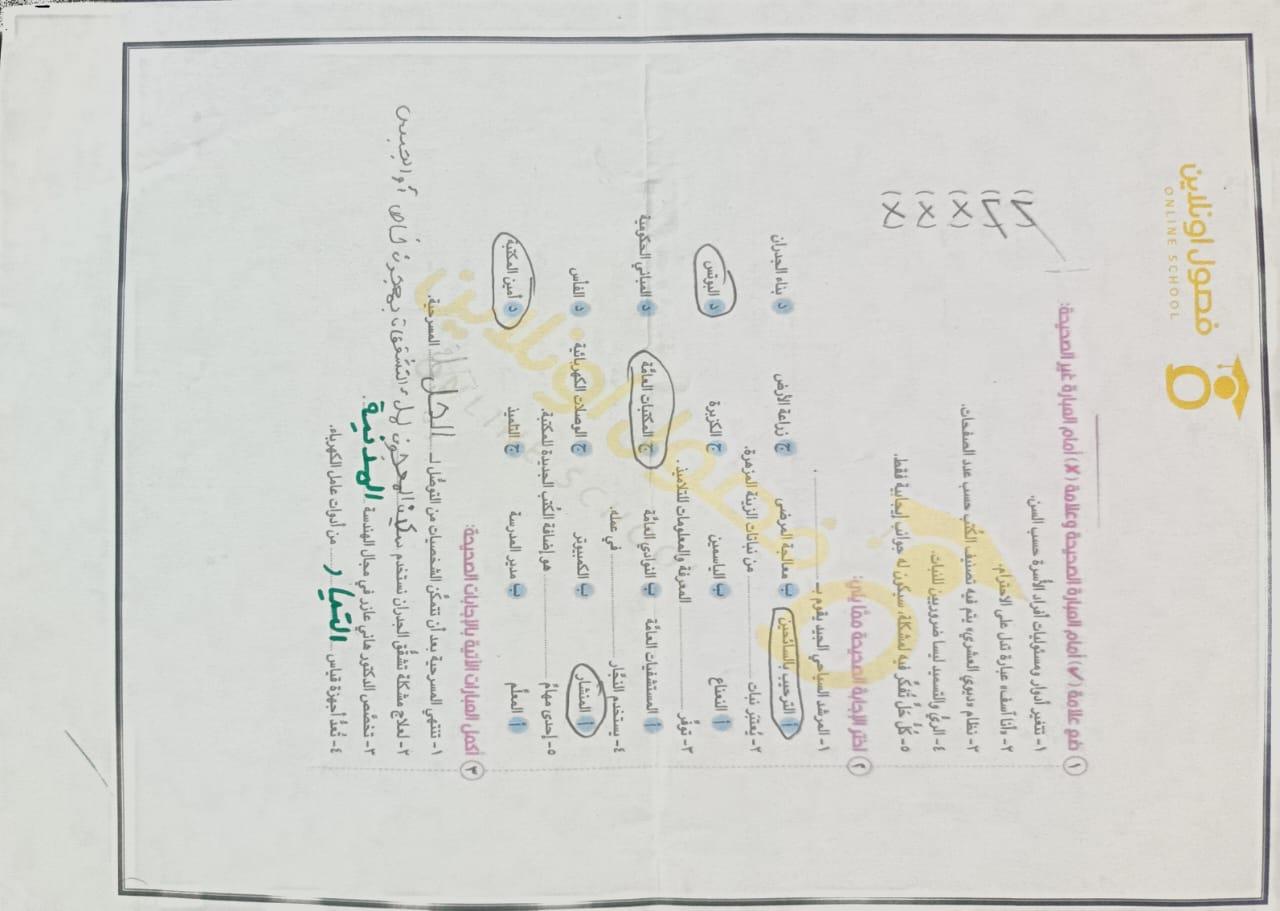 فصول اونلاين
ONLINE SCHOOL
١ ضع علامة (✓) أمام العبارة الصحيحة وعلامة (✗) أمام العبارة غير الصحيحة:
١- تتغير أدوار ومسئوليات أفراد الأسرة حسب السن. (✓)
٢- «أنا آسف» عبارة تدل على الاحترام. (✓)
٣- نظام «ديوي العشري» يتم فيه تصنيف الكُتب حسب عدد الصفحات. (✗)
٤- الريُّ والتسميد ليسا ضروريين للنبات. (✗)
٥- كُلُّ حَلٍّ تُفكِّر فيه لمشكلة، سيكون له جوانب إيجابية فقط. (✗)
٢ اختر الإجابة الصحيحة ممَّا يأتي:
١- المرشد السياحي الجيد يقوم بـ .................... .
أ الترحيب بالسائحين ب معالجة المرضى ج زراعة الأرض د بناء الجدران
٢- يُعتبَر نبات .................... من نباتات الزينة المزهرة.
أ النعناع ب الياسمين ج الكزبرة د البوتس
٣- توفِّر .................... المعرفة والمعلومات للتلاميذ.
أ المستشفيات العامَّة ب النوادي العامَّة ج المكتبات العامَّة د المباني الحكومية
٤- يستخدم النجَّار .................... في عمله.
أ المنشار ب الكمبيوتر ج الوصلات الكهربائية د الفأس
٥- إحدى مهامِّ .................... هو إضافة الكُتب الجديدة للمكتبة.
أ المعلِّم ب مدير المدرسة ج التلميذ د أمين المكتبة
٣ أكمل العبارات الآتية بالإجابات الصحيحة:
١- تنتهي المسرحية بعد أن تتمكَّن الشخصيات من التوصُّل لـ الحل المسرحية.
٢- لعلاج مشكلة تشقُّق الجدران نستخدم سكين المعجون لملء التشققات بمعجون خاص أو الجبس
٣- تخصَّص الدكتور هاني عازر في مجال الهندسة المدنية .
٤- تُعدُّ أجهزة قياس التيار من أدوات عامل الكهرباء.